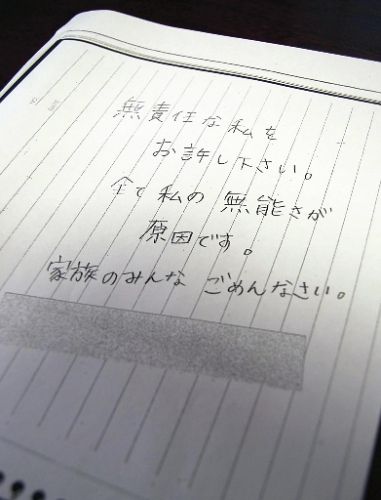 無責任な私を
お許し下さい。
全て私の 無能さが
原因です。
家族のみんな ごめんなさい。